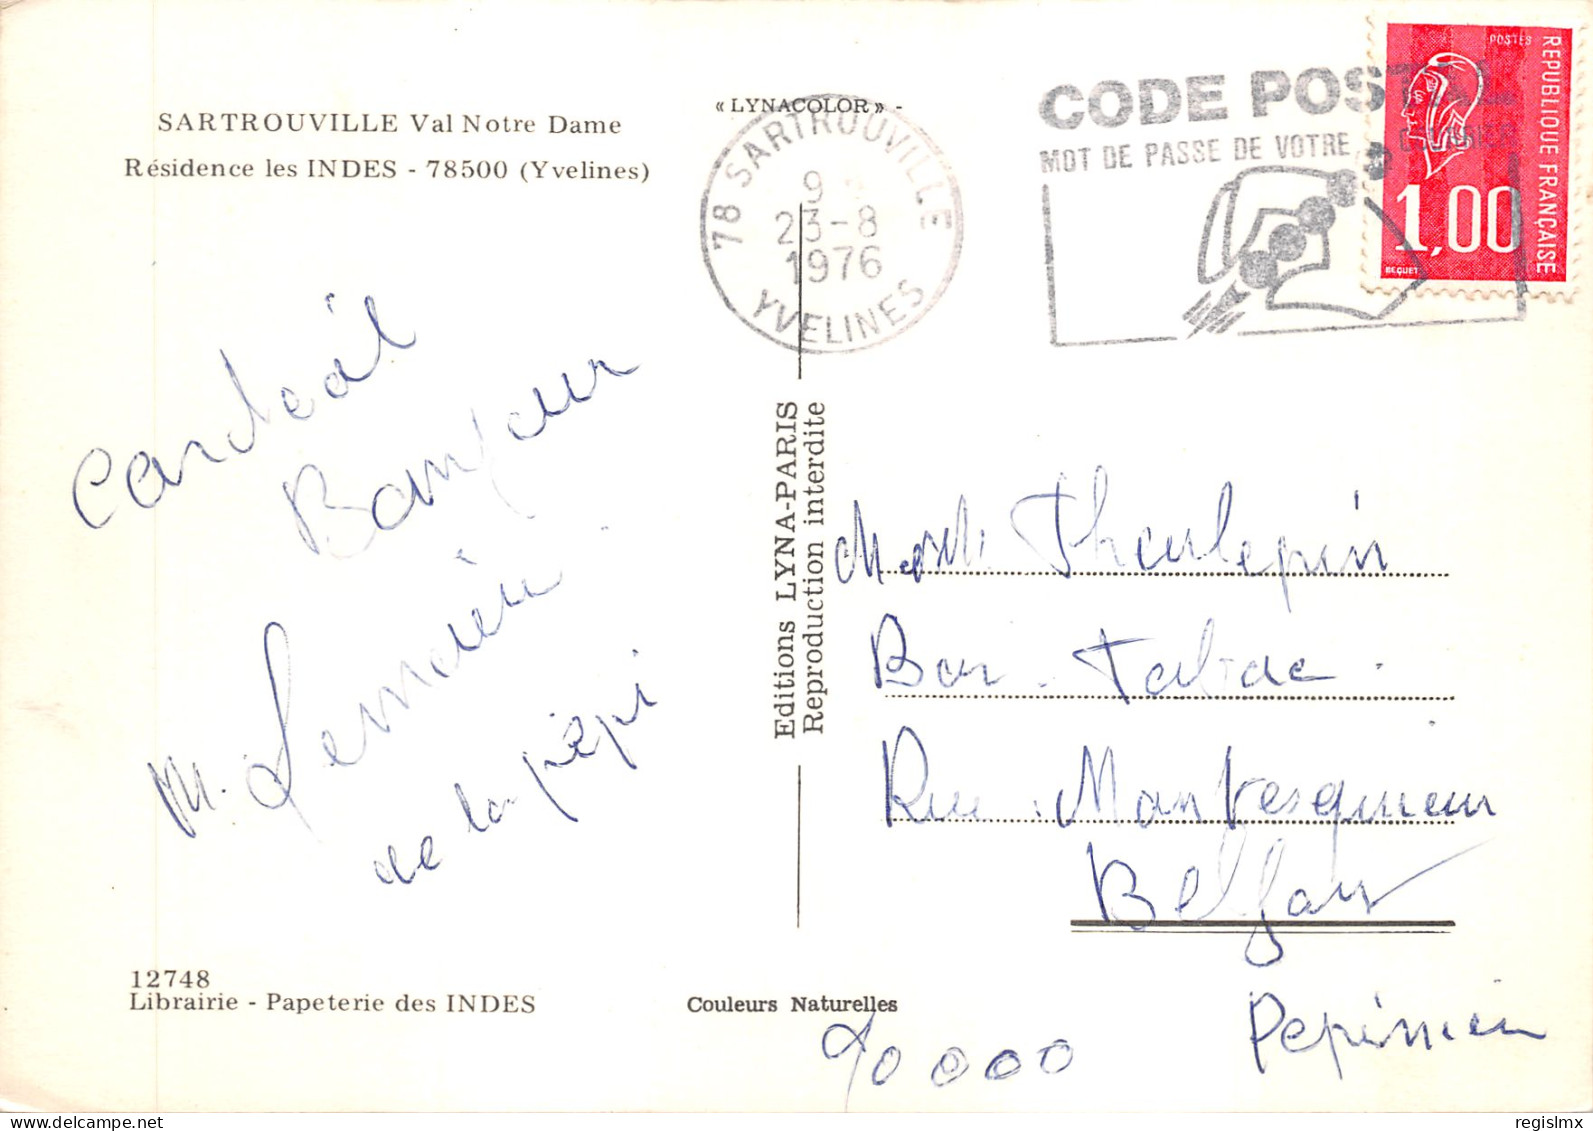 SARTROUVILLE Val Notre Dame
Résidence les INDES - 78500 (Yvelines)
« LYNACOLOR » -
78 SARTROUVILLE
9
23-8
1976
YVELINES
CODE POSTAL
MOT DE PASSE DE VOTRE COURRIER
POSTES
REPUBLIQUE FRANÇAISE
1,00
BEQUET
Cordial
Bonjour
M.
de la pépi
Editions LYNA-PARIS
Reproduction interdite
Theulepin
Bar - Tabac .
Rue
Belfort
Pépinière
90000
12748
Librairie - Papeterie des INDES
Couleurs Naturelles
regislmx